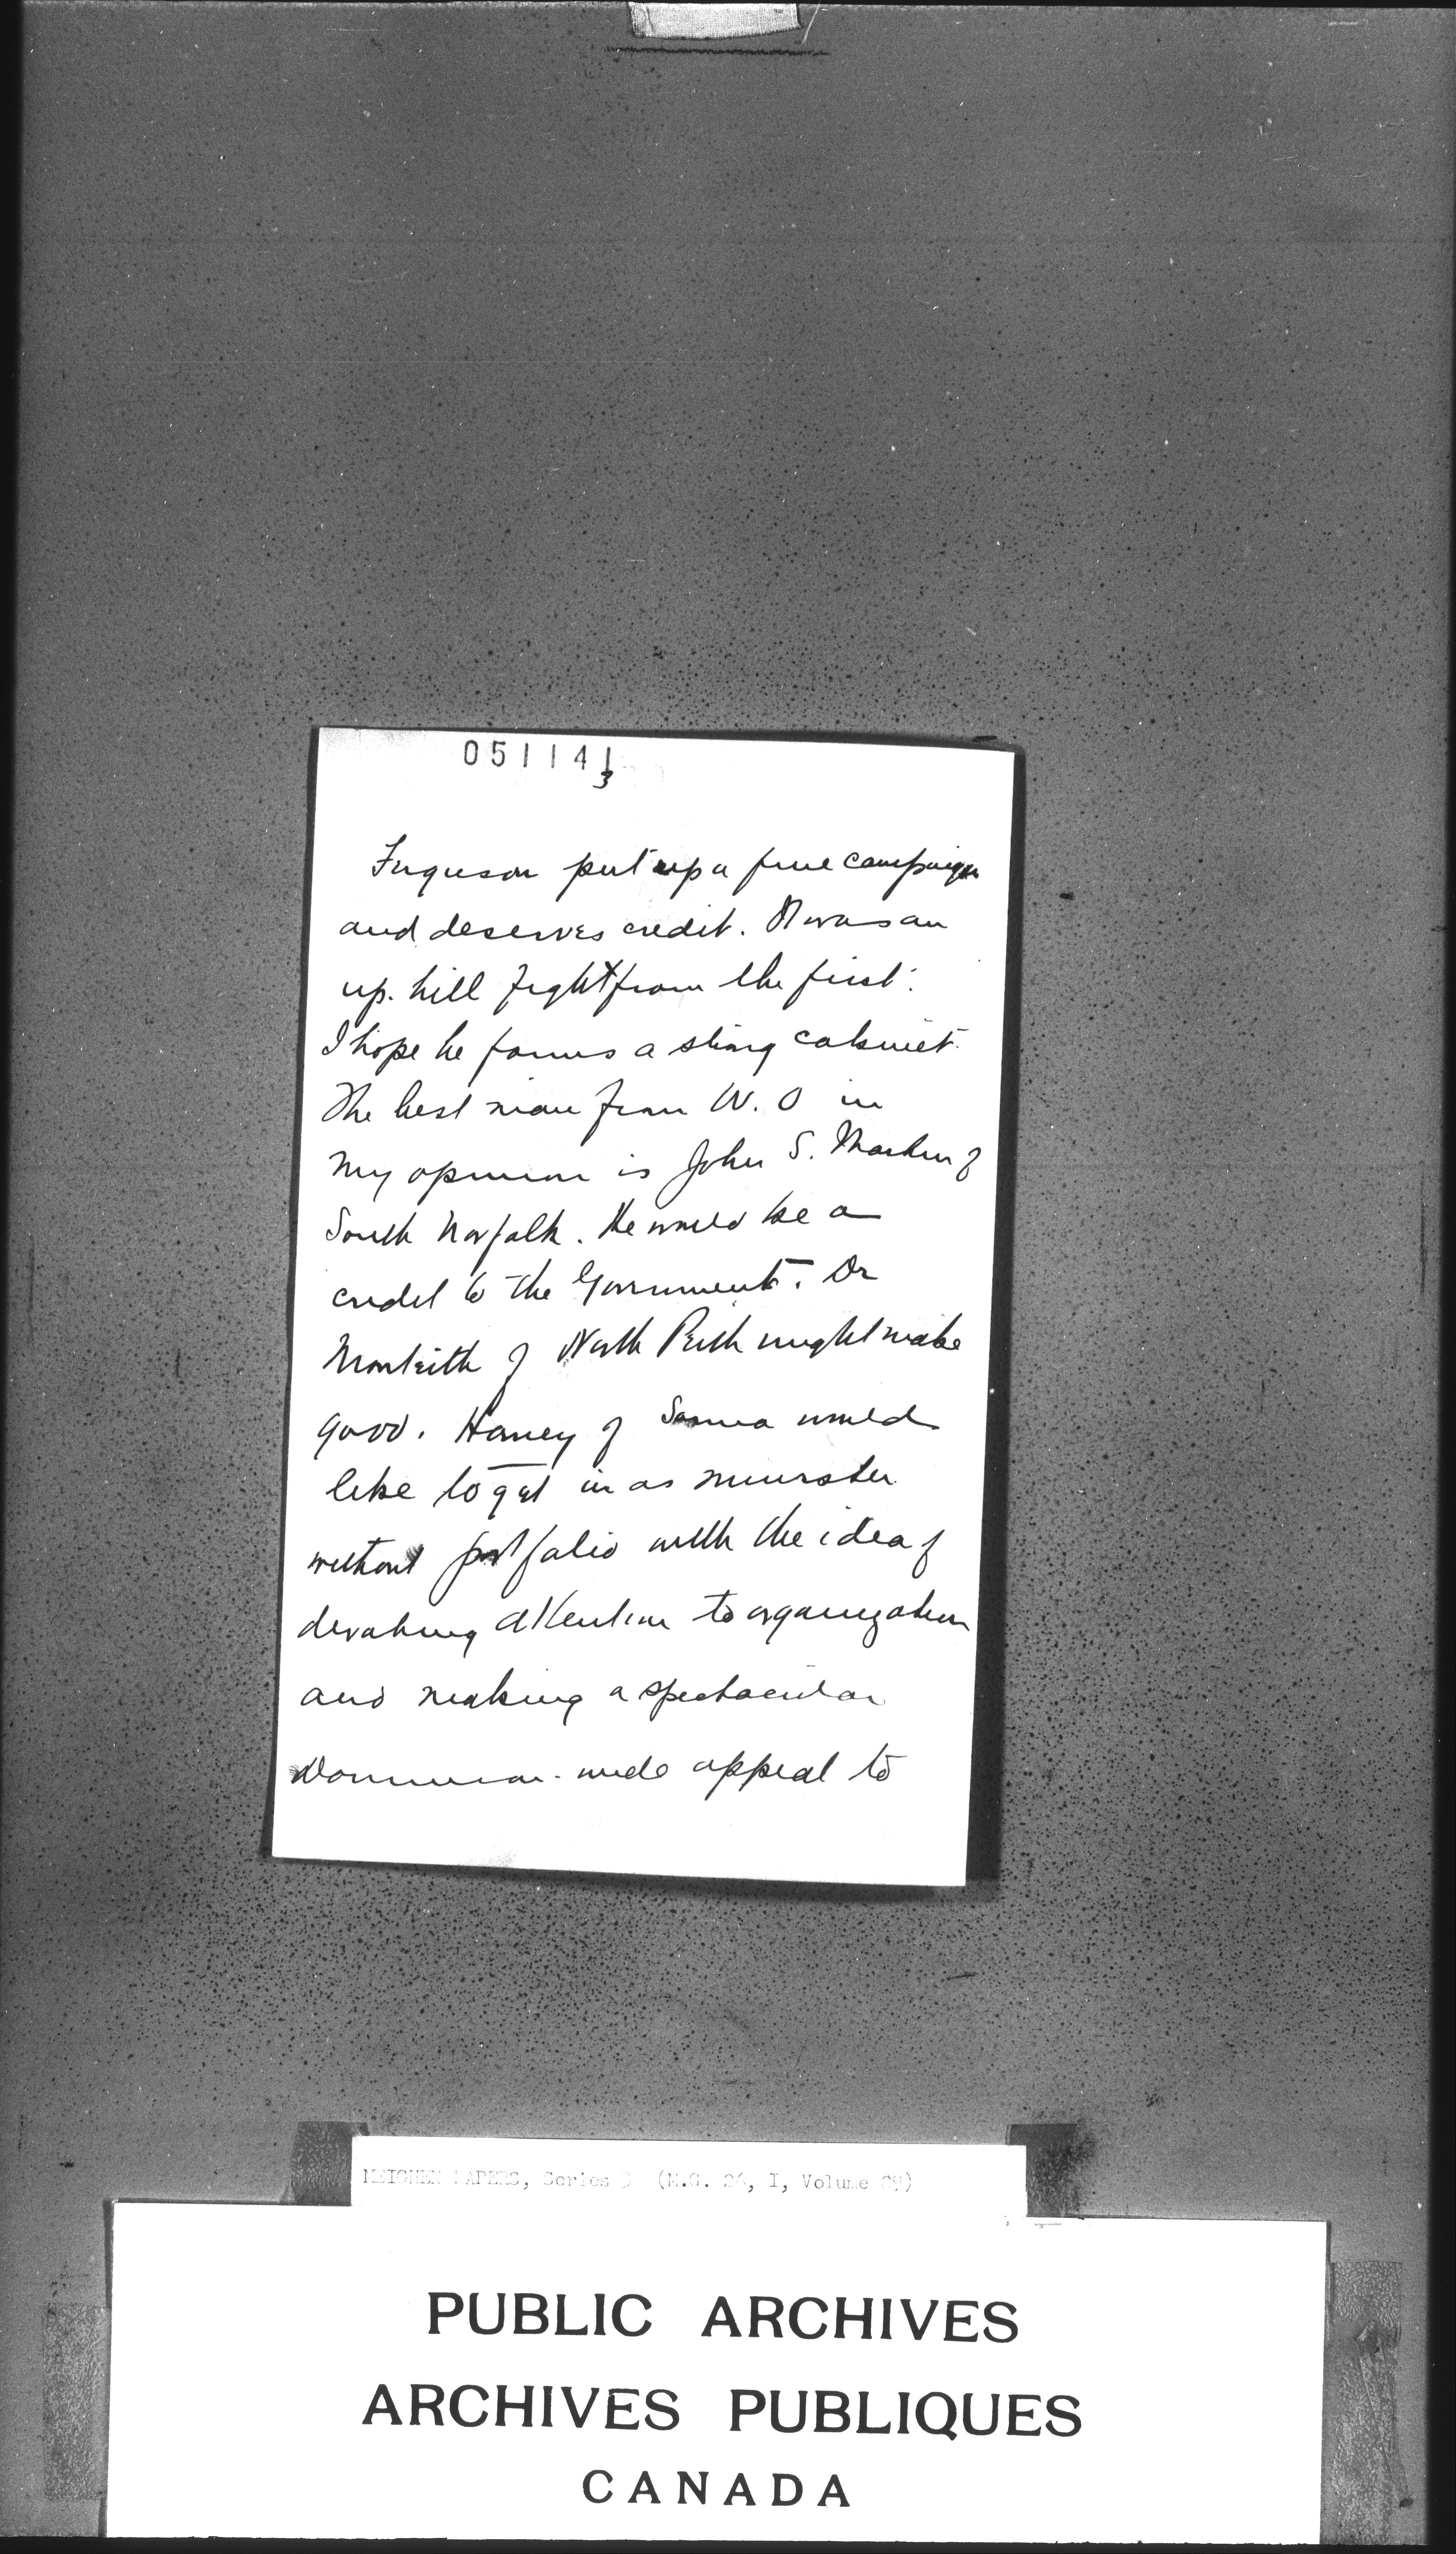 051141
3
Ferguson put up a fine campaign
and deserves credit. It was an
up-hill fight from the first.
I hope he forms a strong cabinet.
The best man from W. O in
my opinion is John S. Martin of
South Norfolk. He would be a
credit to the Government. Dr
Monteith of North Perth might make
good. Haney of Sarnia would
like to get in as minister
without portfolio with the idea of
devoting attention to organization
and making a spectacular
Dominion-wide appeal to
MEIGHEN PAPERS, Series (M.G. 26, I, Volume 89)
PUBLIC ARCHIVES
ARCHIVES PUBLIQUES
CANADA